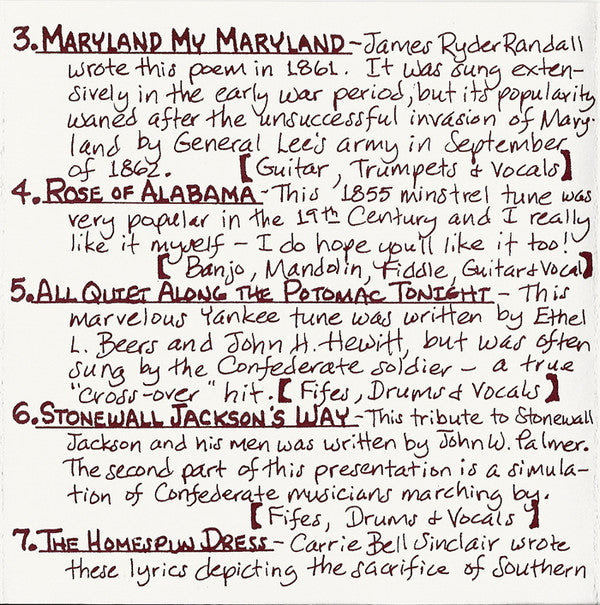 3. MARYLAND MY MARYLAND - James Ryder Randall
wrote this poem in 1861. It was sung exten-
sively in the early war period, but its popularity
waned after the unsuccessful invasion of Mary-
land by General Lee's army in September
of 1862. [Guitar, Trumpets & Vocals]
4. ROSE OF ALABAMA - This 1855 minstrel tune was
very popular in the 19th Century and I really
like it myself - I do hope you'll like it too!
[Banjo, Mandolin, Fiddle, Guitar & Vocal]
5. ALL QUIET ALONG THE POTOMAC TONIGHT - This
marvelous Yankee tune was written by Ethel
L. Beers and John H. Hewitt, but was often
sung by the Confederate soldier - a true
"cross-over" hit. [Fifes, Drums & Vocals]
6. STONEWALL JACKSON'S WAY - This tribute to Stonewall
Jackson and his men was written by John W. Palmer.
The second part of this presentation is a simula-
tion of Confederate musicians marching by.
[Fifes, Drums & Vocals]
7. THE HOMESPUN DRESS - Carrie Bell Sinclair wrote
these lyrics depicting the sacrifice of Southern